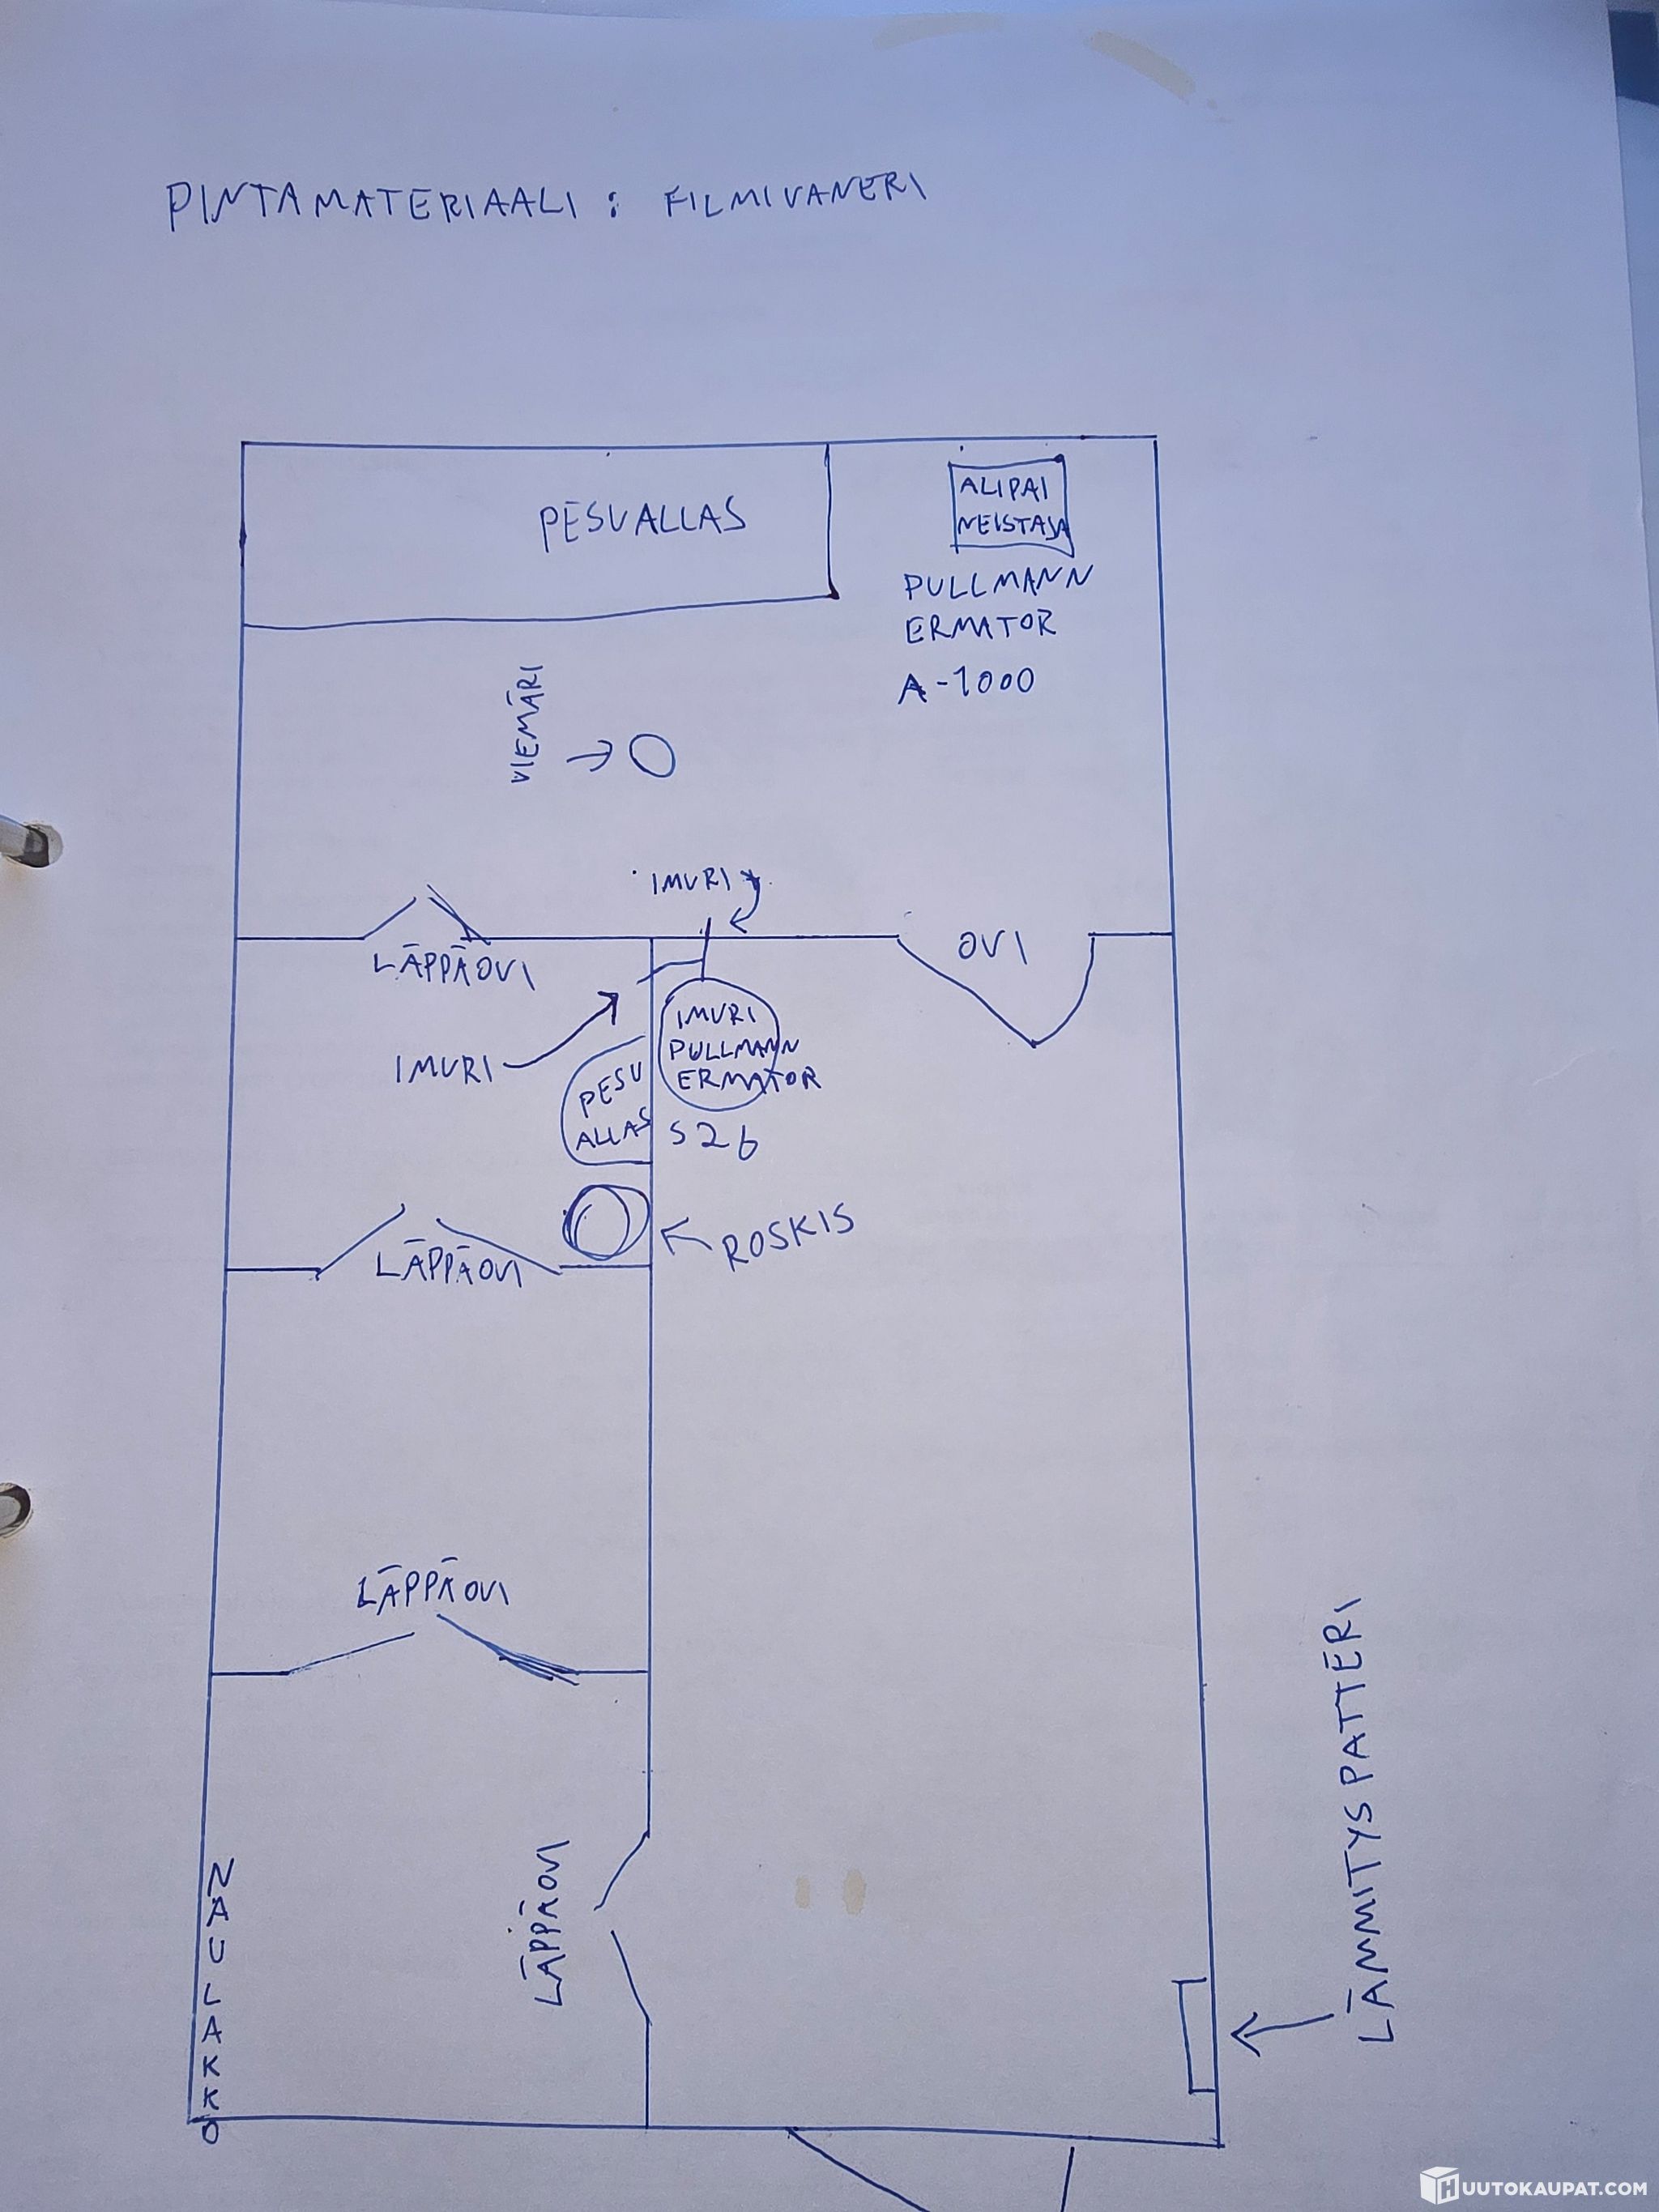 PINTAMATERIAALI : FILMIVANERI
PESUALLAS
ALIPAI
NEISTAJA
PULLMANN
ERMATOR
A-1000
VIEMÄRI
IMURI
LÄPPÄOVI
OVI
IMURI
IMURI
PULLMANN
ERMATOR
S26
PESU
ALLAS
ROSKIS
LÄPPÄOVI
LÄPPÄOVI
LÄPPÄOVI
NAULAKKO
LÄMMITYSPATTERI
HUUTOKAUPAT.COM